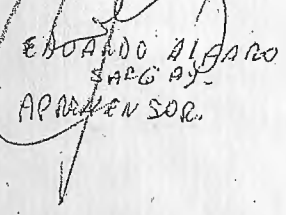 EDOARDO ALFARO
SARG AY-
APREHENSOR.